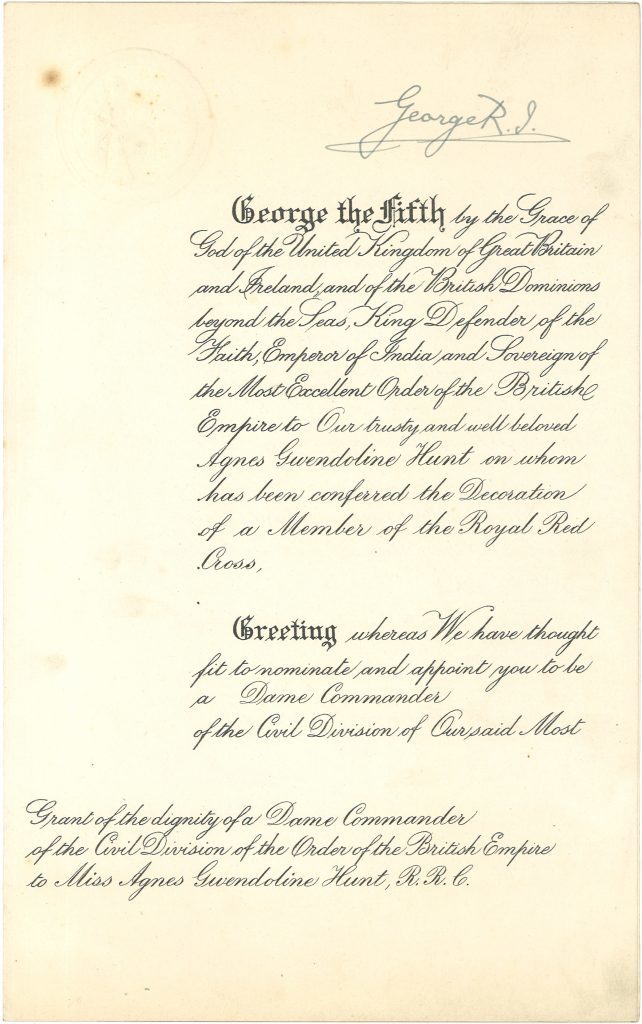 George R.I.
George the Fifth by the Grace of
God of the United Kingdom of Great Britain
and Ireland, and of the British Dominions
beyond the Seas, King Defender, of the
Faith, Emperor of India, and Sovereign of
the Most Excellent Order of the British
Empire to Our trusty and well beloved
Agnes Gwendoline Hunt on whom
has been conferred the Decoration
of a Member of the Royal Red
Cross,
Greeting whereas We have thought
fit to nominate and appoint you to be
a Dame Commander
of the Civil Division of Our said Most
Grant of the dignity of a Dame Commander
of the Civil Division of the Order of the British Empire
to Miss Agnes Gwendoline Hunt, R.R.C.